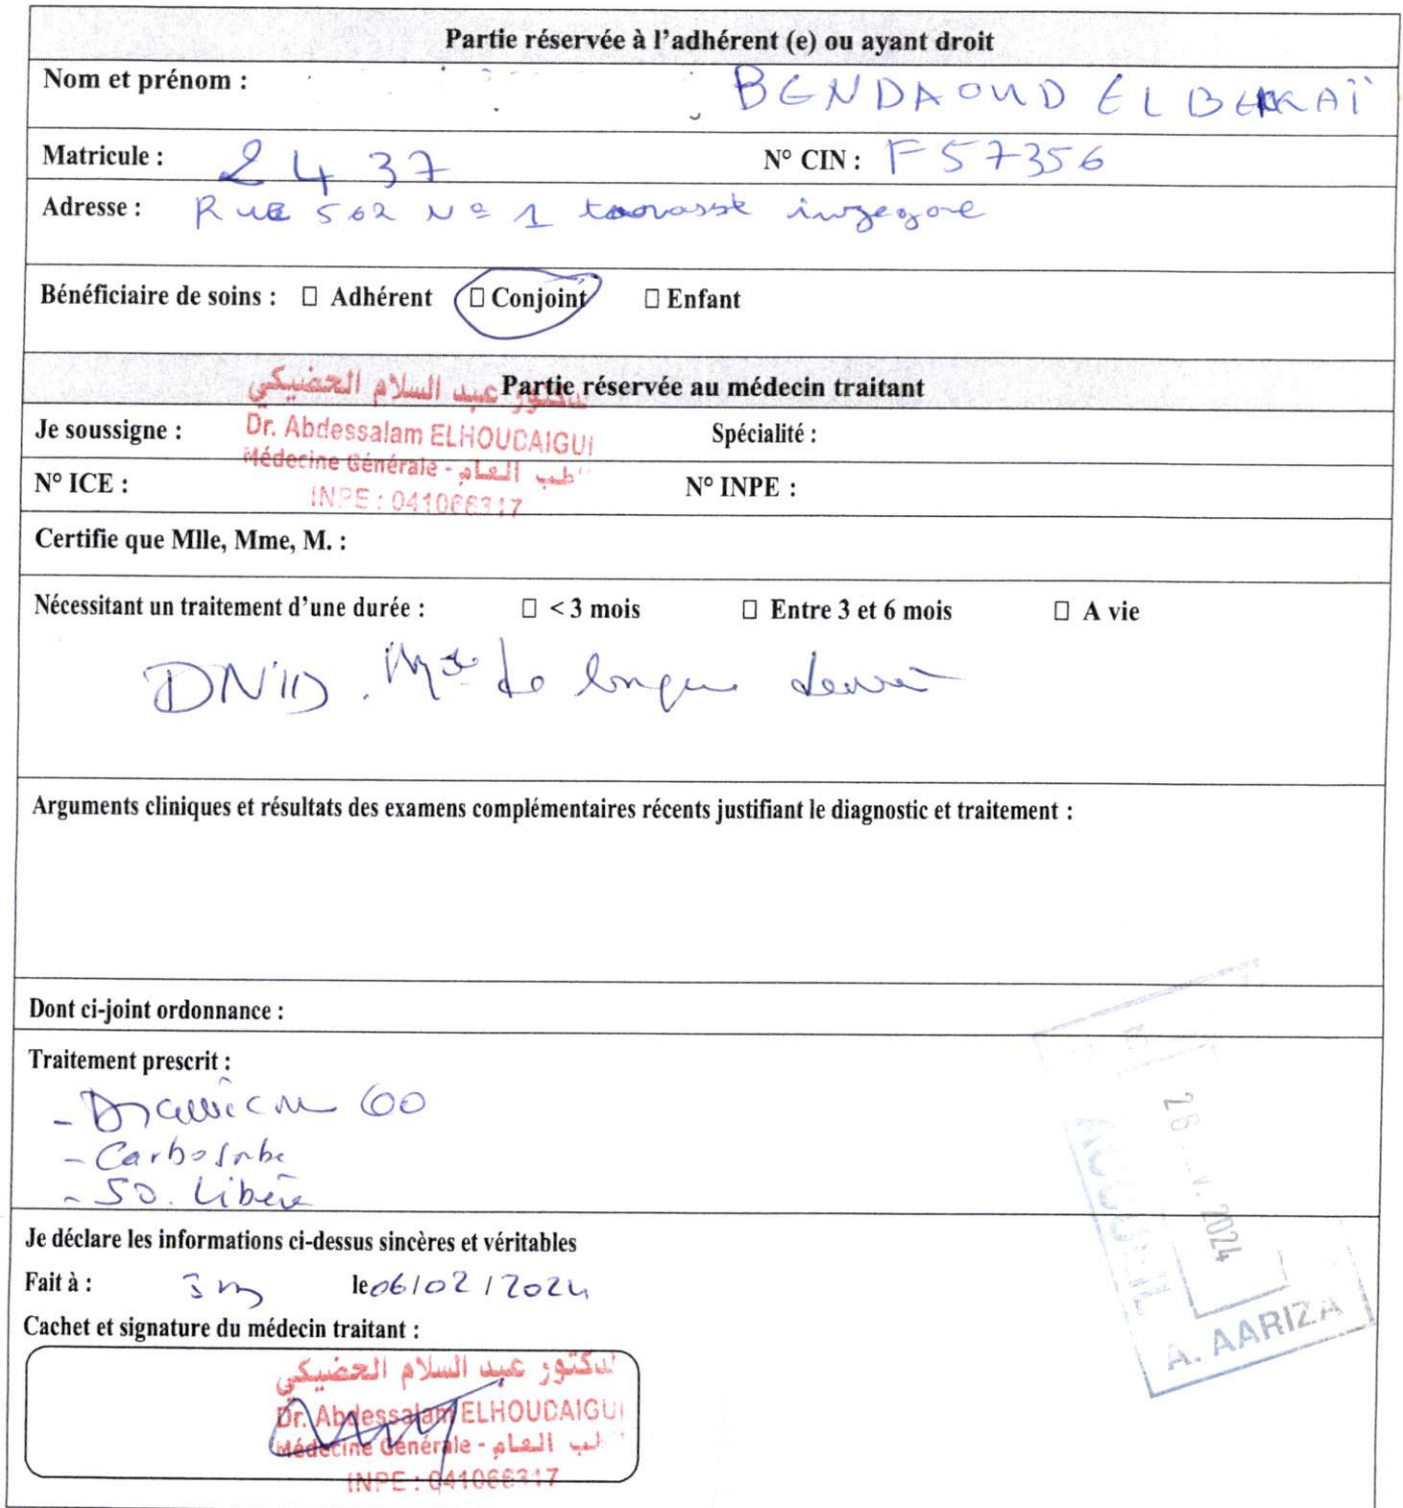 Partie réservée à l'adhérent (e) ou ayant droit
Nom et prénom : BENDAOUD EL BEKRAÏ
Matricule : 2437 N° CIN : F57356
Adresse : Rue 502 N° 1
Bénéficiaire de soins : □ Adhérent □ Conjoint □ Enfant
الدكتور عبد السلام الحضيكي
Partie réservée au médecin traitant
Je soussigne : Dr. Abdessalam ELHOUDAIGUI Spécialité :
Médecine Générale - الطب العام
N° ICE : INPE : 041066317 N° INPE :
Certifie que Mlle, Mme, M. :
Nécessitant un traitement d'une durée : □ < 3 mois □ Entre 3 et 6 mois □ A vie
DNID. de longue durée
Arguments cliniques et résultats des examens complémentaires récents justifiant le diagnostic et traitement :
Dont ci-joint ordonnance :
Traitement prescrit :
- Diamicron 60
- Carbosnbe
- SD. Libère
Je déclare les informations ci-dessus sincères et véritables
Fait à : le 06/02/2024
Cachet et signature du médecin traitant :
الدكتور عبد السلام الحضيكي
Dr. Abdessalam ELHOUDAIGUI
Médecine Générale - الطب العام
INPE : 041066317
ACCUEIL
2024
A. AARIZA